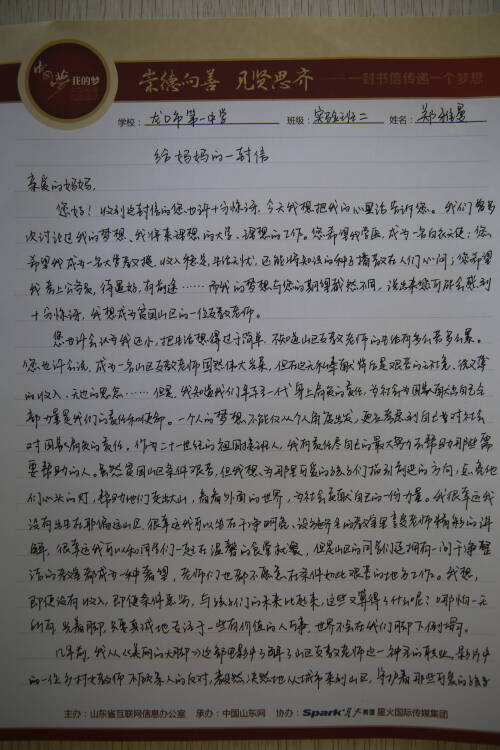 中国梦 我的梦
崇德向善 见贤思齐 ——一封书信传递一个梦想
学校：龙口市第一中学 班级：实验班二 姓名：郑雅
给妈妈的一封信
亲爱的妈妈，
您好！收到这封信的您也许十分惊讶，今天我想把我的心里话告诉您。我们曾多
次讨论过我的梦想、我将来理想的大学、理想的工作。您希望我学医，成为一名白衣天使；您
希望我成为一名大学教授，收入稳定，生活无忧，还能将知识的种子播散在人们心间；您希望
我考上公务员，待遇好，有前途……而我的梦想与您的期望截然不同，说出来您可能会感到
十分惊讶，我想成为贫困山区的一位支教老师。
您也许会认为我还小，把生活想得过于简单，不知道山区支教老师的生活有多么苦多么累。
您也许会说，成为一名山区支教老师固然伟大光荣，但在这光和幸福背后是艰苦的环境，微薄
的收入，无边的思念……但是，我知道我们年轻一代身上肩负的责任，为社会为国家贡献出自己全
部力量是我们的责任和使命。一个人的梦想不能仅从个人角度出发，更要考虑到自己对社会
对国家肩负的责任。作为二十一世纪的祖国接班人，我有责任尽自己的最大努力去帮助那些需
要帮助的人。虽然贫困山区条件艰苦，但我想为那里可爱的孩子们指引前进的方向，点亮他
们心头的灯，帮助他们走出大山，看看外面的世界，为社会贡献自己的一份力量。我很幸运我
没有出生在那偏远山区，很幸运我可以坐在干净明亮、设备齐全的教室里听老师精彩的讲
解，很幸运我可以和同学们一起在温馨的食堂就餐，但是山区的同学们连拥有一间干净整
洁的教室都成为一种奢望，老师们也都不愿意在条件如此艰苦的地方工作。我想，
即使没有收入，即使条件恶劣，与孩子们的未来比起来，这些又算得了什么呢？哪怕一无
所有，光着脚，只要真诚地去活于一些有价值的人与事，世界不会在我们脚下倒塌。
几年前，我从《美丽的大脚》这部电影中了解了山区支教老师这一神圣的职业。影片中
的一位乡村女教师不顾家人的反对，毅然决然地从城市来到山区，守护着那些可爱的孩子
主办：山东省互联网信息办公室 承办：中国山东网 协办：Spark 星火英语 星火国际传媒集团